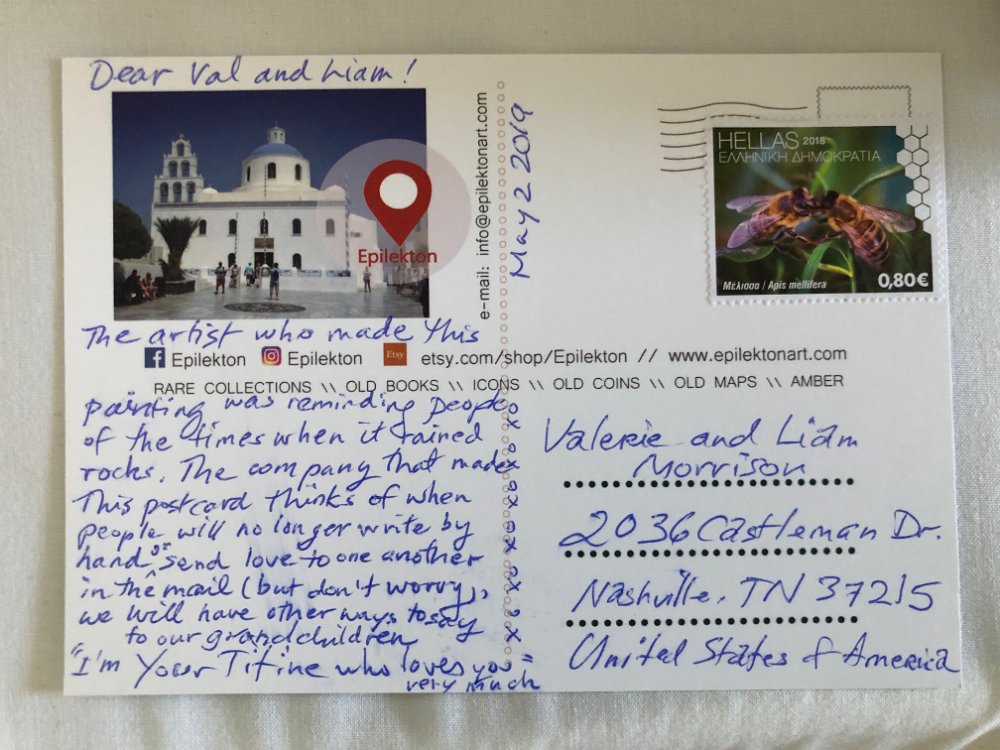 Dear Val and Liam!
Epilekton
e-mail: info@epilektonart.com
May 2 2019
HELLAS 2018
ΕΛΛΗΝΙΚΗ ΔΗΜΟΚΡΑΤΙΑ
Μέλισσα / Apis mellifera
0,80€
The artist who made this
Epilekton Epilekton Etsy etsy.com/shop/Epilekton // www.epilektonart.com
RARE COLLECTIONS \\ OLD BOOKS \\ ICONS \\ OLD COINS \\ OLD MAPS \\ AMBER
painting was reminding people
of the times when it rained
rocks. The company that made
This postcard thinks of when
people will no longer write by
hand or send love to one another
in the mail (but don't worry,
we will have other ways to say
to our grandchildren
"I'm Your Tifine who loves you"
very much
xoxoxoxoxoxox
Valerie and Liam
Morrison
2036 Castleman Dr.
Nashville, TN 37215
United States of America